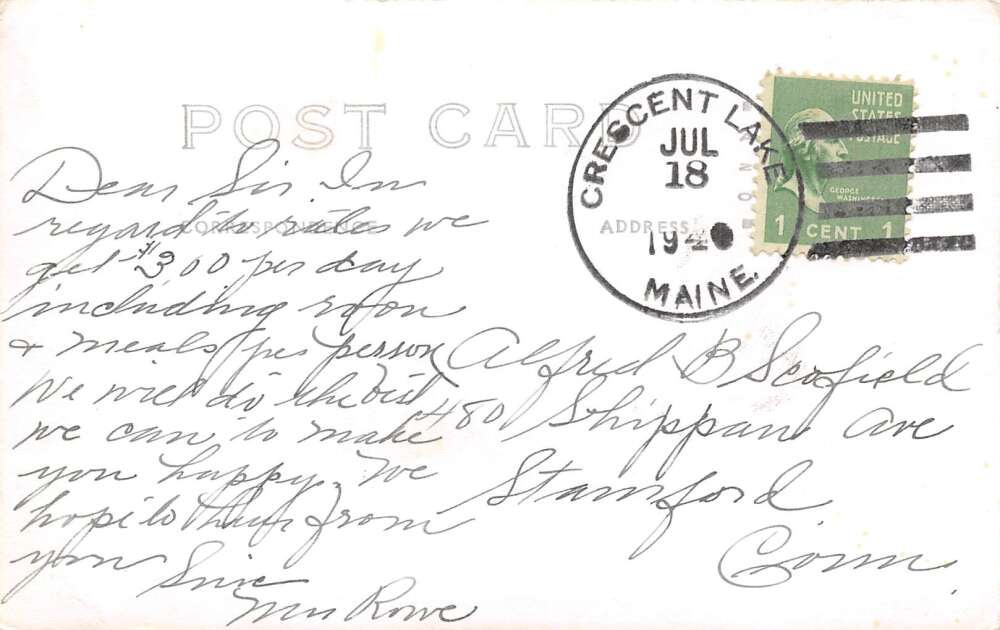 POST CARD
CORRESPONDENCE
ADDRESS
CRESCENT LAKE
JUL
18
194
MAINE.
UNITED
STATES
POSTAGE
GEORGE
WASHINGTON
1 CENT 1
Dear Sir In
regard to rates we
get $3.00 per day
including room
& meals per person
We will do the best
we can to make
you happy. We
hope to hear from
you
Sinc
Mrs Rowe
Alfred B Scofield
480 Shippan Ave
Stamford
Conn.